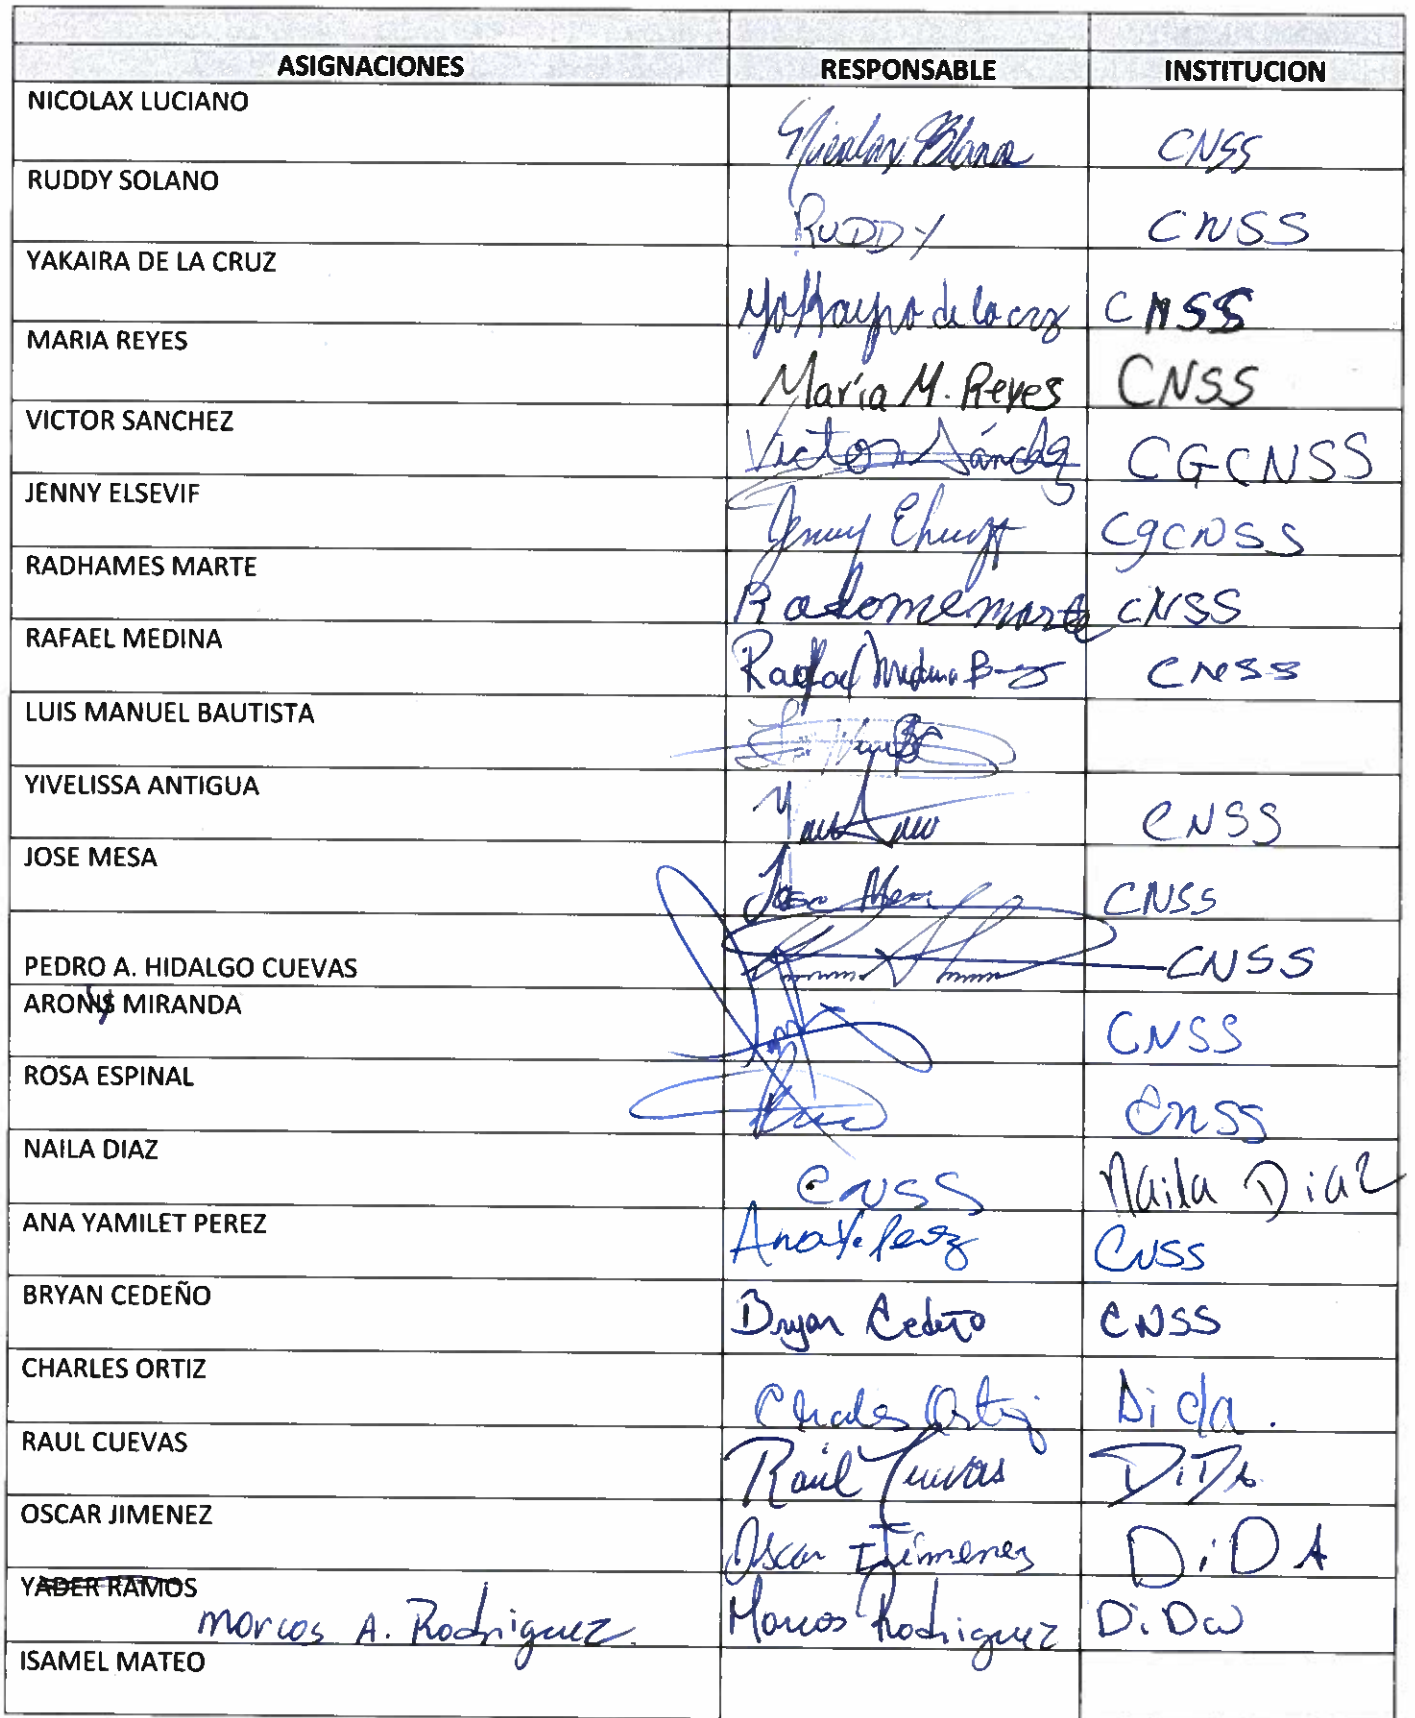 ASIGNACIONES RESPONSABLE INSTITUCION
NICOLAX LUCIANO CNSS
RUDDY SOLANO RUDDY CNSS
YAKAIRA DE LA CRUZ de la cruz CNSS
MARIA REYES María M. Reyes CNSS
VICTOR SANCHEZ Victor Sánchez CGCNSS
JENNY ELSEVIF Jenny CgCNSS
RADHAMES MARTE CNSS
RAFAEL MEDINA Rafael Medina CNSS
LUIS MANUEL BAUTISTA
YIVELISSA ANTIGUA CNSS
JOSE MESA Jose Mesa CNSS
PEDRO A. HIDALGO CUEVAS CNSS
MIRANDA CNSS
ROSA ESPINAL CNSS
NAILA DIAZ CNSS Naila Diaz
ANA YAMILET PEREZ Ana Y. Perez CNSS
BRYAN CEDEÑO Bryan Cedeño CNSS
CHARLES ORTIZ Charles Ortiz Dida.
RAUL CUEVAS Raúl Cuevas DiDA
OSCAR JIMENEZ Oscar Jimenez DiDA
YADER RAMOS
Marcos A. Rodriguez. Marcos Rodriguez DiDa
ISAMEL MATEO